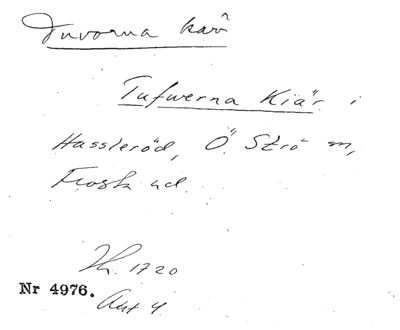 Tuvorna kärr
Tufwerna Kiär i
Hassleröd, Ö Strö m,
Frosta hd.
1720
Nr 4976.
Akt 4